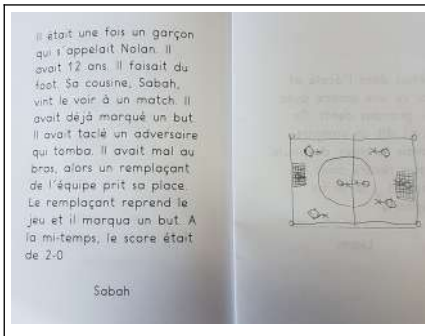 Il était une fois un garçon
qui s'appelait Nolan. Il
avait 12 ans. Il faisait du
foot. Sa cousine, Sabah,
vint le voir à un match. Il
avait déjà marqué un but.
Il avait taclé un adversaire
qui tomba. Il avait mal au
bras, alors un remplaçant
de l'équipe prit sa place.
Le remplaçant reprend le
jeu et il marqua un but. A
la mi-temps, le score était
de 2-0
Sabah